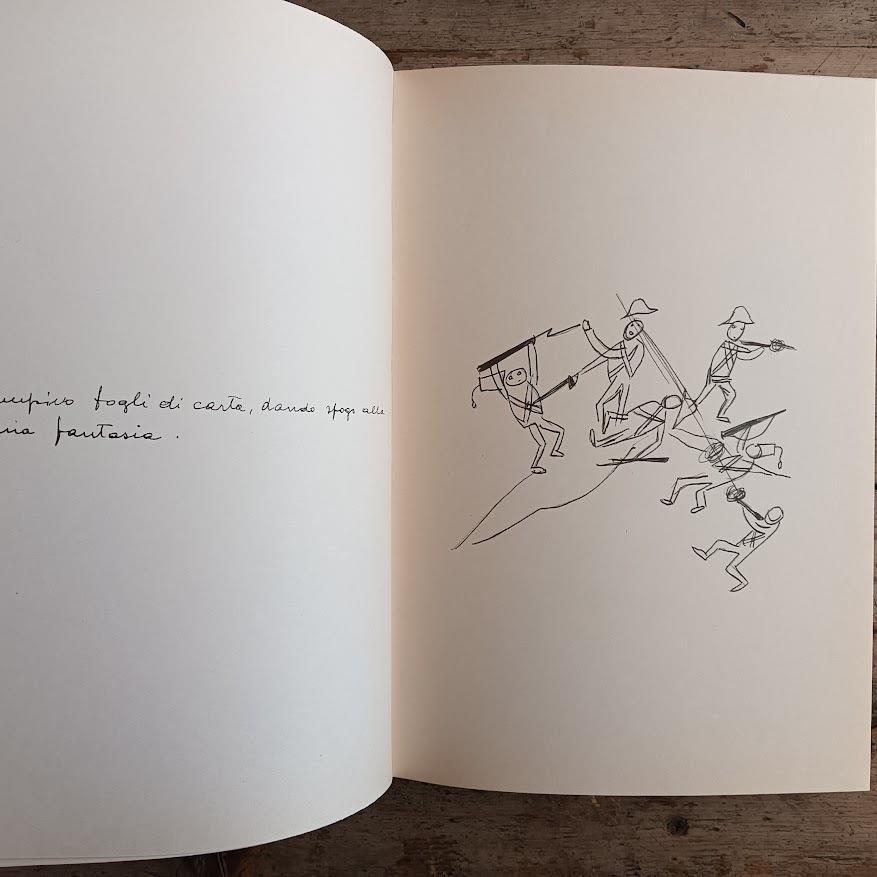 fogli di carta, dando sfogo alla
fantasia.